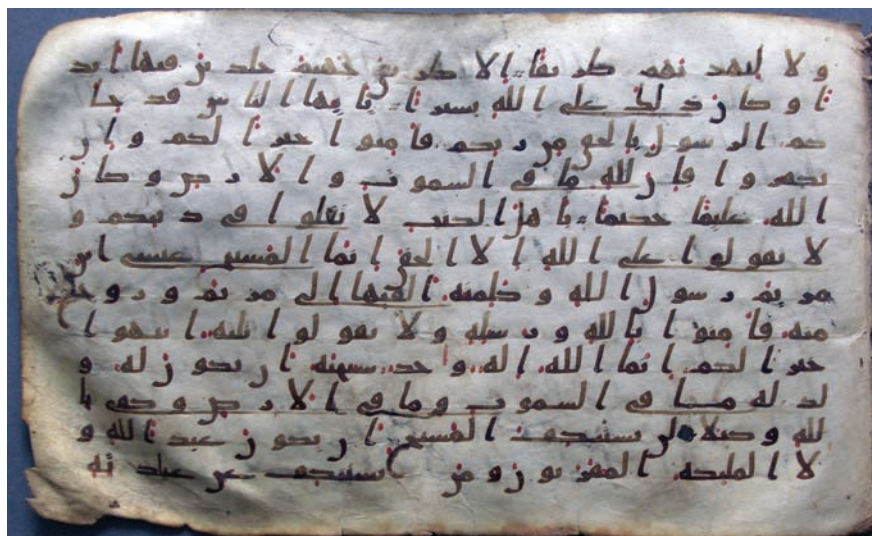 و لا ليهديهم طريقا الا طريق جهنم خلدين فيها ابد
ا و كان ذلك على الله يسيرا يايها الناس قد جا
كم الرسول بالحق من ربكم فامنوا خيرا لكم و ان
تكفروا فان لله ما في السموت و الارض و كان
الله عليما حكيما ياهل الكتب لا تغلوا في دينكم و
لا تقولوا على الله الا الحق انما المسيح عيسى ابن
مريم رسول الله و كلمته القيها الى مريم و روح
منه فامنوا بالله و رسله و لا تقولوا ثلثه انتهوا
خيرا لكم انما الله اله وحد سبحنه ان يكون له و
لد له ما في السموت و ما في الارض و كفى با
لله وكيلا لن يستنكف المسيح ان يكون عبدا لله و
لا الملئكه المقربون و من يستنكف عن عبادته